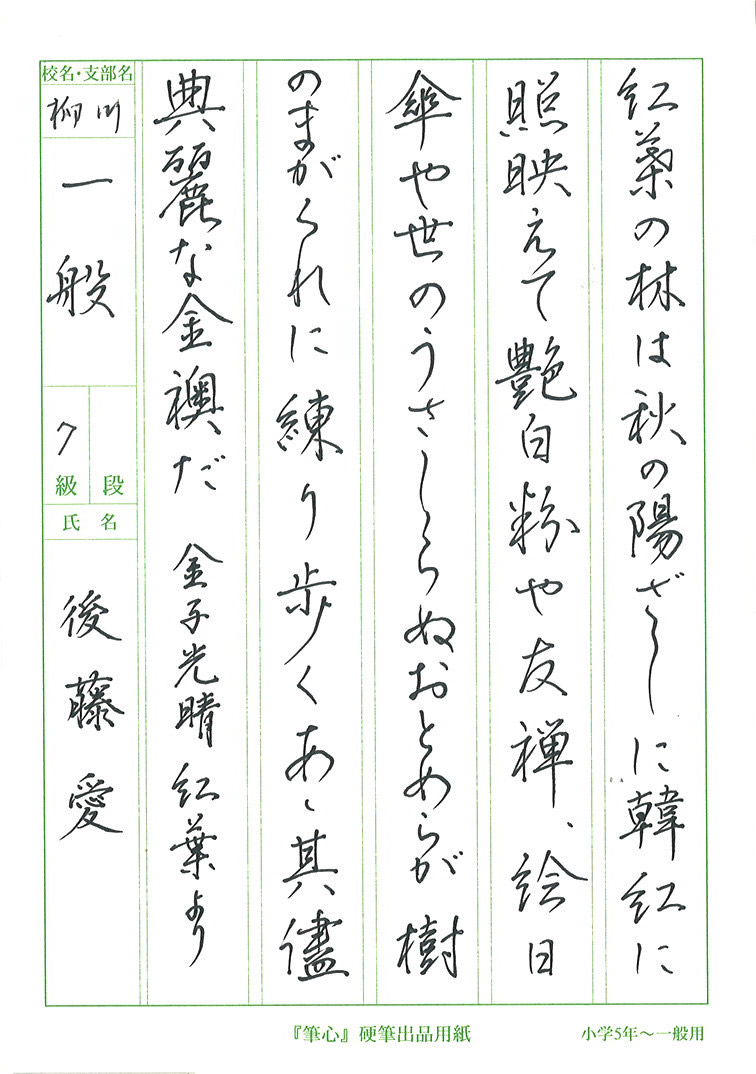 紅葉の林は秋の陽ざしに韓紅に
照映えて艶白粉や友禅、絵日
傘や世のうさしらぬおとめらが樹
のまがくれに練り歩くあゝ其儘
典麗な金襖だ 金子光晴 紅葉より
校名・支部名
柳川
一般
7
級 段
氏名
後藤愛
『筆心』硬筆出品用紙
小学5年～一般用